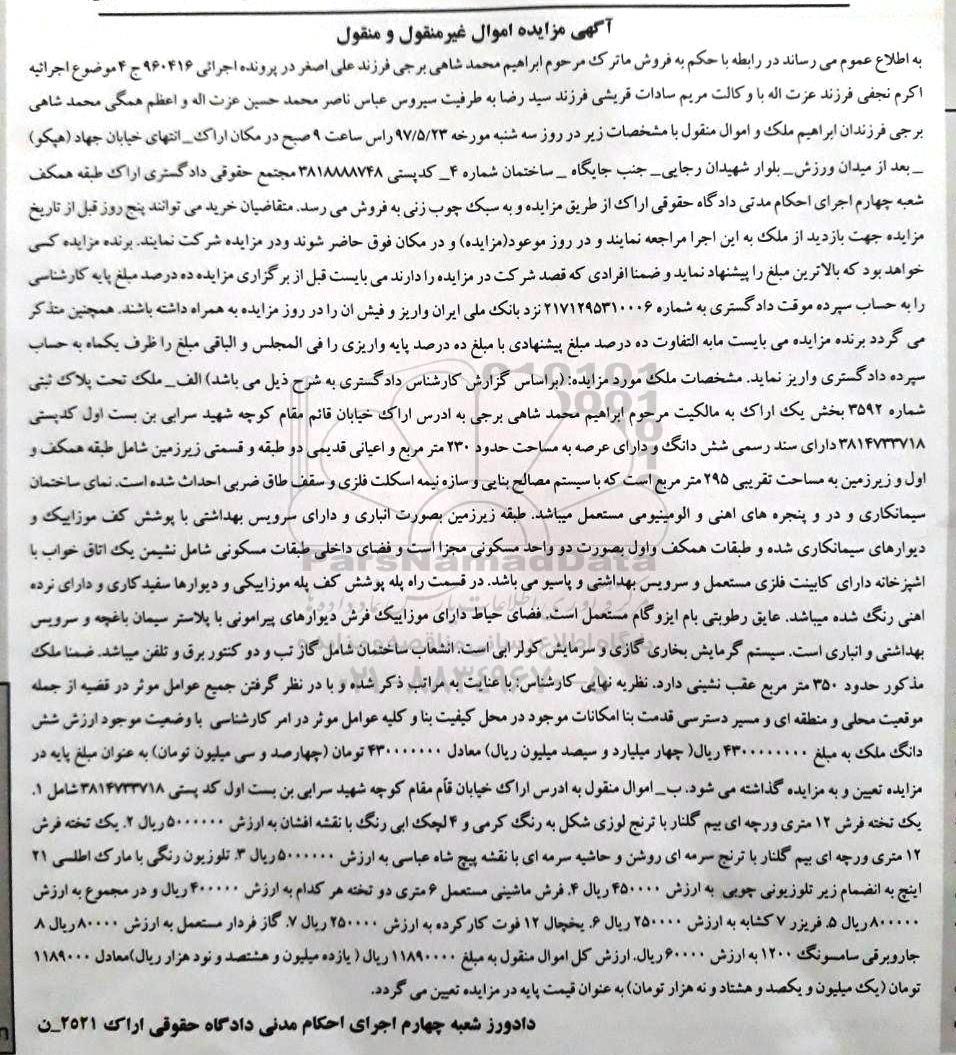 آگهی مزایده اموال غیرمنقول و منقول
به اطلاع عموم می رساند در رابطه با حکم به فروش ماترک مرحوم ابراهیم محمد شاهی برجی فرزند علی اصغر در پرونده اجرائی ۹۶۰۴۱۶ ج ۴ موضوع اجرائیه
اکرم نجفی فرزند عزت اله با وکالت مریم سادات قریشی فرزند سید رضا به طرفیت سیروس عباس ناصر محمد حسین عزت اله و اعظم همگی محمد شاهی
برجی فرزندان ابراهیم ملک و اموال منقول با مشخصات زیر در روز سه شنبه مورخه ۹۷/۵/۲۳ راس ساعت ۹ صبح در مکان اراک_ انتهای خیابان جهاد (هپکو)
_ بعد از میدان ورزش_ بلوار شهیدان رجایی_ جنب جایگاه _ ساختمان شماره ۴_ کدپستی ۳۸۱۸۸۸۸۷۴۸ مجتمع حقوقی دادگستری اراک طبقه همکف
شعبه چهارم اجرای احکام مدنی دادگاه حقوقی اراک از طریق مزایده و به سبک چوب زنی به فروش می رسد. متقاضیان خرید می توانند پنج روز قبل از تاریخ
مزایده جهت بازدید از ملک به این اجرا مراجعه نمایند و در روز موعود(مزایده) و در مکان فوق حاضر شوند ودر مزایده شرکت نمایند. برنده مزایده کسی
خواهد بود که بالاترین مبلغ را پیشنهاد نماید و ضمنا افرادی که قصد شرکت در مزایده را دارند می بایست قبل از برگزاری مزایده ده درصد مبلغ پایه کارشناسی
را به حساب سپرده موقت دادگستری به شماره ۲۱۷۱۲۹۵۳۱۰۰۰۶ نزد بانک ملی ایران واریز و فیش ان را در روز مزایده به همراه داشته باشند. همچنین متذکر
می گردد برنده مزایده می بایست مابه التفاوت ده درصد مبلغ پیشنهادی با مبلغ ده درصد پایه واریزی را فی المجلس و الباقی مبلغ را ظرف یکماه به حساب
سپرده دادگستری واریز نماید. مشخصات ملک مورد مزایده: (براساس گزارش کارشناس دادگستری به شرح ذیل می باشد) الف_ ملک تحت پلاک ثبتی
شماره ۳۵۹۲ بخش یک اراک به مالکیت مرحوم ابراهیم محمد شاهی برجی به ادرس اراک خیابان قائم مقام کوچه شهید سرابی بن بست اول کدپستی
۳۸۱۴۷۳۳۷۱۸ دارای سند رسمی شش دانگ و دارای عرصه به مساحت حدود ۲۳۰ متر مربع و اعیانی قدیمی دو طبقه و قسمتی زیرزمین شامل طبقه همکف و
اول و زیرزمین به مساحت تقریبی ۲۹۵ متر مربع است که با سیستم مصالح بنایی و سازه نیمه اسکلت فلزی و سقف طاق ضربی احداث شده است. نمای ساختمان
سیمانکاری و در و پنجره های اهنی و الومینیومی مستعمل میباشد. طبقه زیرزمین بصورت انباری و دارای سرویس بهداشتی با پوشش کف موزاییک و
دیوارهای سیمانکاری شده و طبقات همکف واول بصورت دو واحد مسکونی مجزا است و فضای داخلی طبقات مسکونی شامل نشیمن یک اتاق خواب با
اشپزخانه دارای کابینت فلزی مستعمل و سرویس بهداشتی و پاسیو می باشد. در قسمت راه پله پوشش کف پله موزاییکی و دیوارها سفیدکاری و دارای نرده
اهنی رنگ شده میباشد. عایق رطوبتی بام ایزوگام مستعمل است. فضای حیاط دارای موزاییک فرش دیوارهای پیرامونی با پلاستر سیمان باغچه و سرویس
بهداشتی و انباری است. سیستم گرمایش بخاری گازی و سرمایش کولر ابی است. انشعاب ساختمان شامل گاز تب و دو کنتور برق و تلفن میباشد. ضمنا ملک
مذکور حدود ۳۵۰ متر مربع عقب نشینی دارد. نظریه نهایی کارشناس: با عنایت به مراتب ذکر شده و با در نظر گرفتن جمیع عوامل موثر در قضیه از جمله
موقعیت محلی و منطقه ای و مسیر دسترسی قدمت بنا امکانات موجود در محل کیفیت بنا و کلیه عوامل موثر در امر کارشناسی با وضعیت موجود ارزش شش
دانگ ملک به مبلغ ۴۳۰۰۰۰۰۰۰۰ ریال( چهار میلیارد و سیصد میلیون ریال) معادل ۴۳۰۰۰۰۰۰۰ تومان (چهارصد و سی میلیون تومان) به عنوان مبلغ پایه در
مزایده تعیین و به مزایده گذاشته می شود. ب_ اموال منقول به ادرس اراک خیابان قاًم مقام کوچه شهید سرابی بن بست اول کد پستی ۳۸۱۴۷۳۳۷۱۸ شامل ۱.
یک تخته فرش ۱۲ متری ورچه ای بیم گلنار با ترنج لوزی شکل به رنگ کرمی و ۴ لچک ابی رنگ با نقشه افشان به ارزش ۵۰۰۰۰۰۰ ریال ۲. یک تخته فرش
۱۲ متری ورچه ای بیم گلنار با ترنج سرمه ای روشن و حاشیه سرمه ای با نقشه پیچ شاه عباسی به ارزش ۵۰۰۰۰۰۰ ریال ۳. تلوزیون رنگی با مارک اطلسی ۲۱
اینچ به انضمام زیر تلوزیونی چوبی به ارزش ۴۵۰۰۰۰ ریال ۴. فرش ماشینی مستعمل ۶ متری دو تخته هر کدام به ارزش ۴۰۰۰۰۰ ریال و در مجموع به ارزش
۸۰۰۰۰۰ ریال ۵. فریزر ۷ کشابه به ارزش ۲۵۰۰۰۰ ریال ۶. یخچال ۱۲ فوت کارکرده به ارزش ۲۵۰۰۰۰ ریال ۷. گاز فردار مستعمل به ارزش ۸۰۰۰۰ ریال ۸.
جاروبرقی سامسونگ ۱۲۰۰ به ارزش ۶۰۰۰۰ ریال. ارزش کل اموال منقول به مبلغ ۱۱۸۹۰۰۰۰ ریال ( یازده میلیون و هشتصد و نود هزار ریال)معادل ۱۱۸۹۰۰۰
تومان (یک میلیون و یکصد و هشتاد و نه هزار تومان) به عنوان قیمت پایه در مزایده تعیین می گردد.
دادورز شعبه چهارم اجرای احکام مدنی دادگاه حقوقی اراک ۲۵۲۱_ن
ParsNamadData